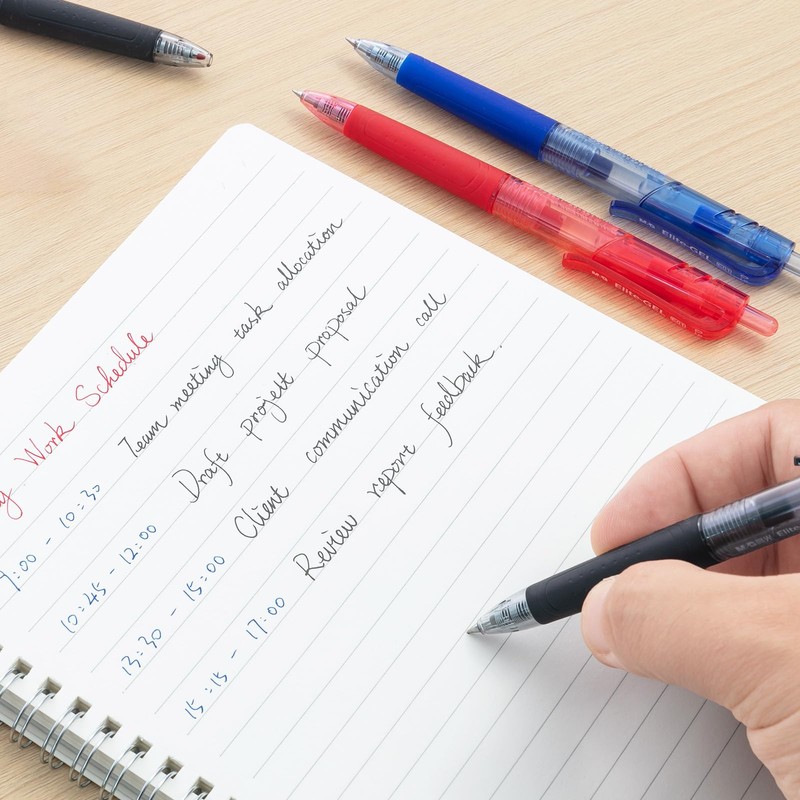 Work Schedule
9:00 - 10:30 Team meeting task allocation
10:45 - 12:00 Draft projelt proposal
13:30 - 15:00 Client communication call
15:15 - 17:00 Review report feedback.
M&G EliteGEL
M&G EliteGEL
M&G Elite